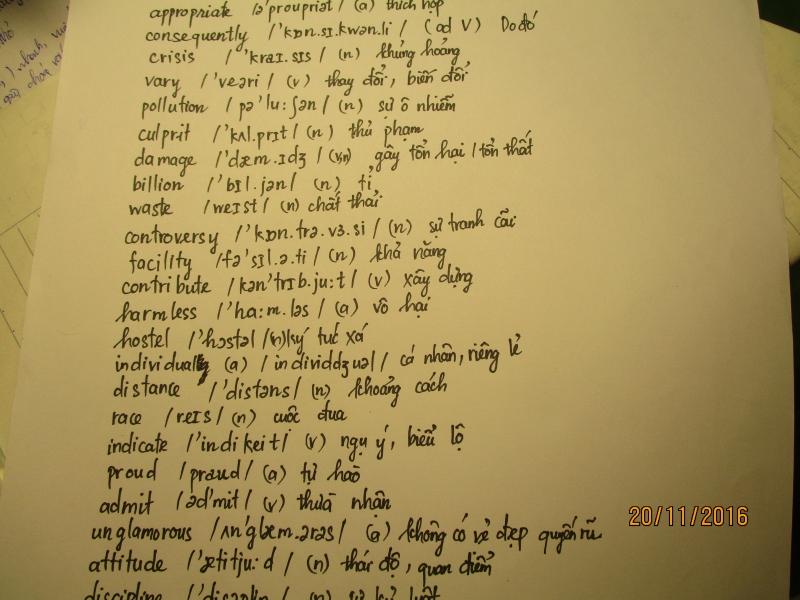 appropriate /ə'prəupriət/ (a) thích hợp
consequently /'kɒn.sɪ.kwən.li / (ad V) Do đó
crisis /'kraɪ.sɪs (n) khủng hoảng
vary /'veəri / (v) thay đổi, biến đổi
pollution / pə'lu:ʃən / (n) sự ô nhiễm
culprit /'kʌl.prɪt / (n) thủ phạm
damage /'dæm.ɪdʒ / (v,n) gây tổn hại / tổn thất
billion /'bɪl.jən/ (n) tỉ
waste /weɪst/ (n) chất thải
controversy /'kɒn.trə.vɜ.si / (n) sự tranh cãi
facility /fə'sɪl.ə.ti / (n) khả năng
contribute /kən'trɪb.ju:t / (v) xây dựng
harmless /'ha:m.ləs / (a) vô hại
hostel /'hɔstəl /(n) ký túc xá
individual (a) / individdʒuəl / cá nhân, riêng lẻ
distance /'distəns/ (n) khoảng cách
race /reɪs/ (n) cuộc đua
indicate /'indikeit/ (v) ngụ ý, biểu lộ
proud /praud/ (a) tự hào
admit /əd'mit/ (v) thừa nhận
unglamorous /ʌn'glæm.ərəs/ (a) không có vẻ đẹp quyến rũ
attitude /'ætitju:d / (n) thái độ, quan điểm
discipline /'disəplin / (n) sự kỷ luật
20/11/2016